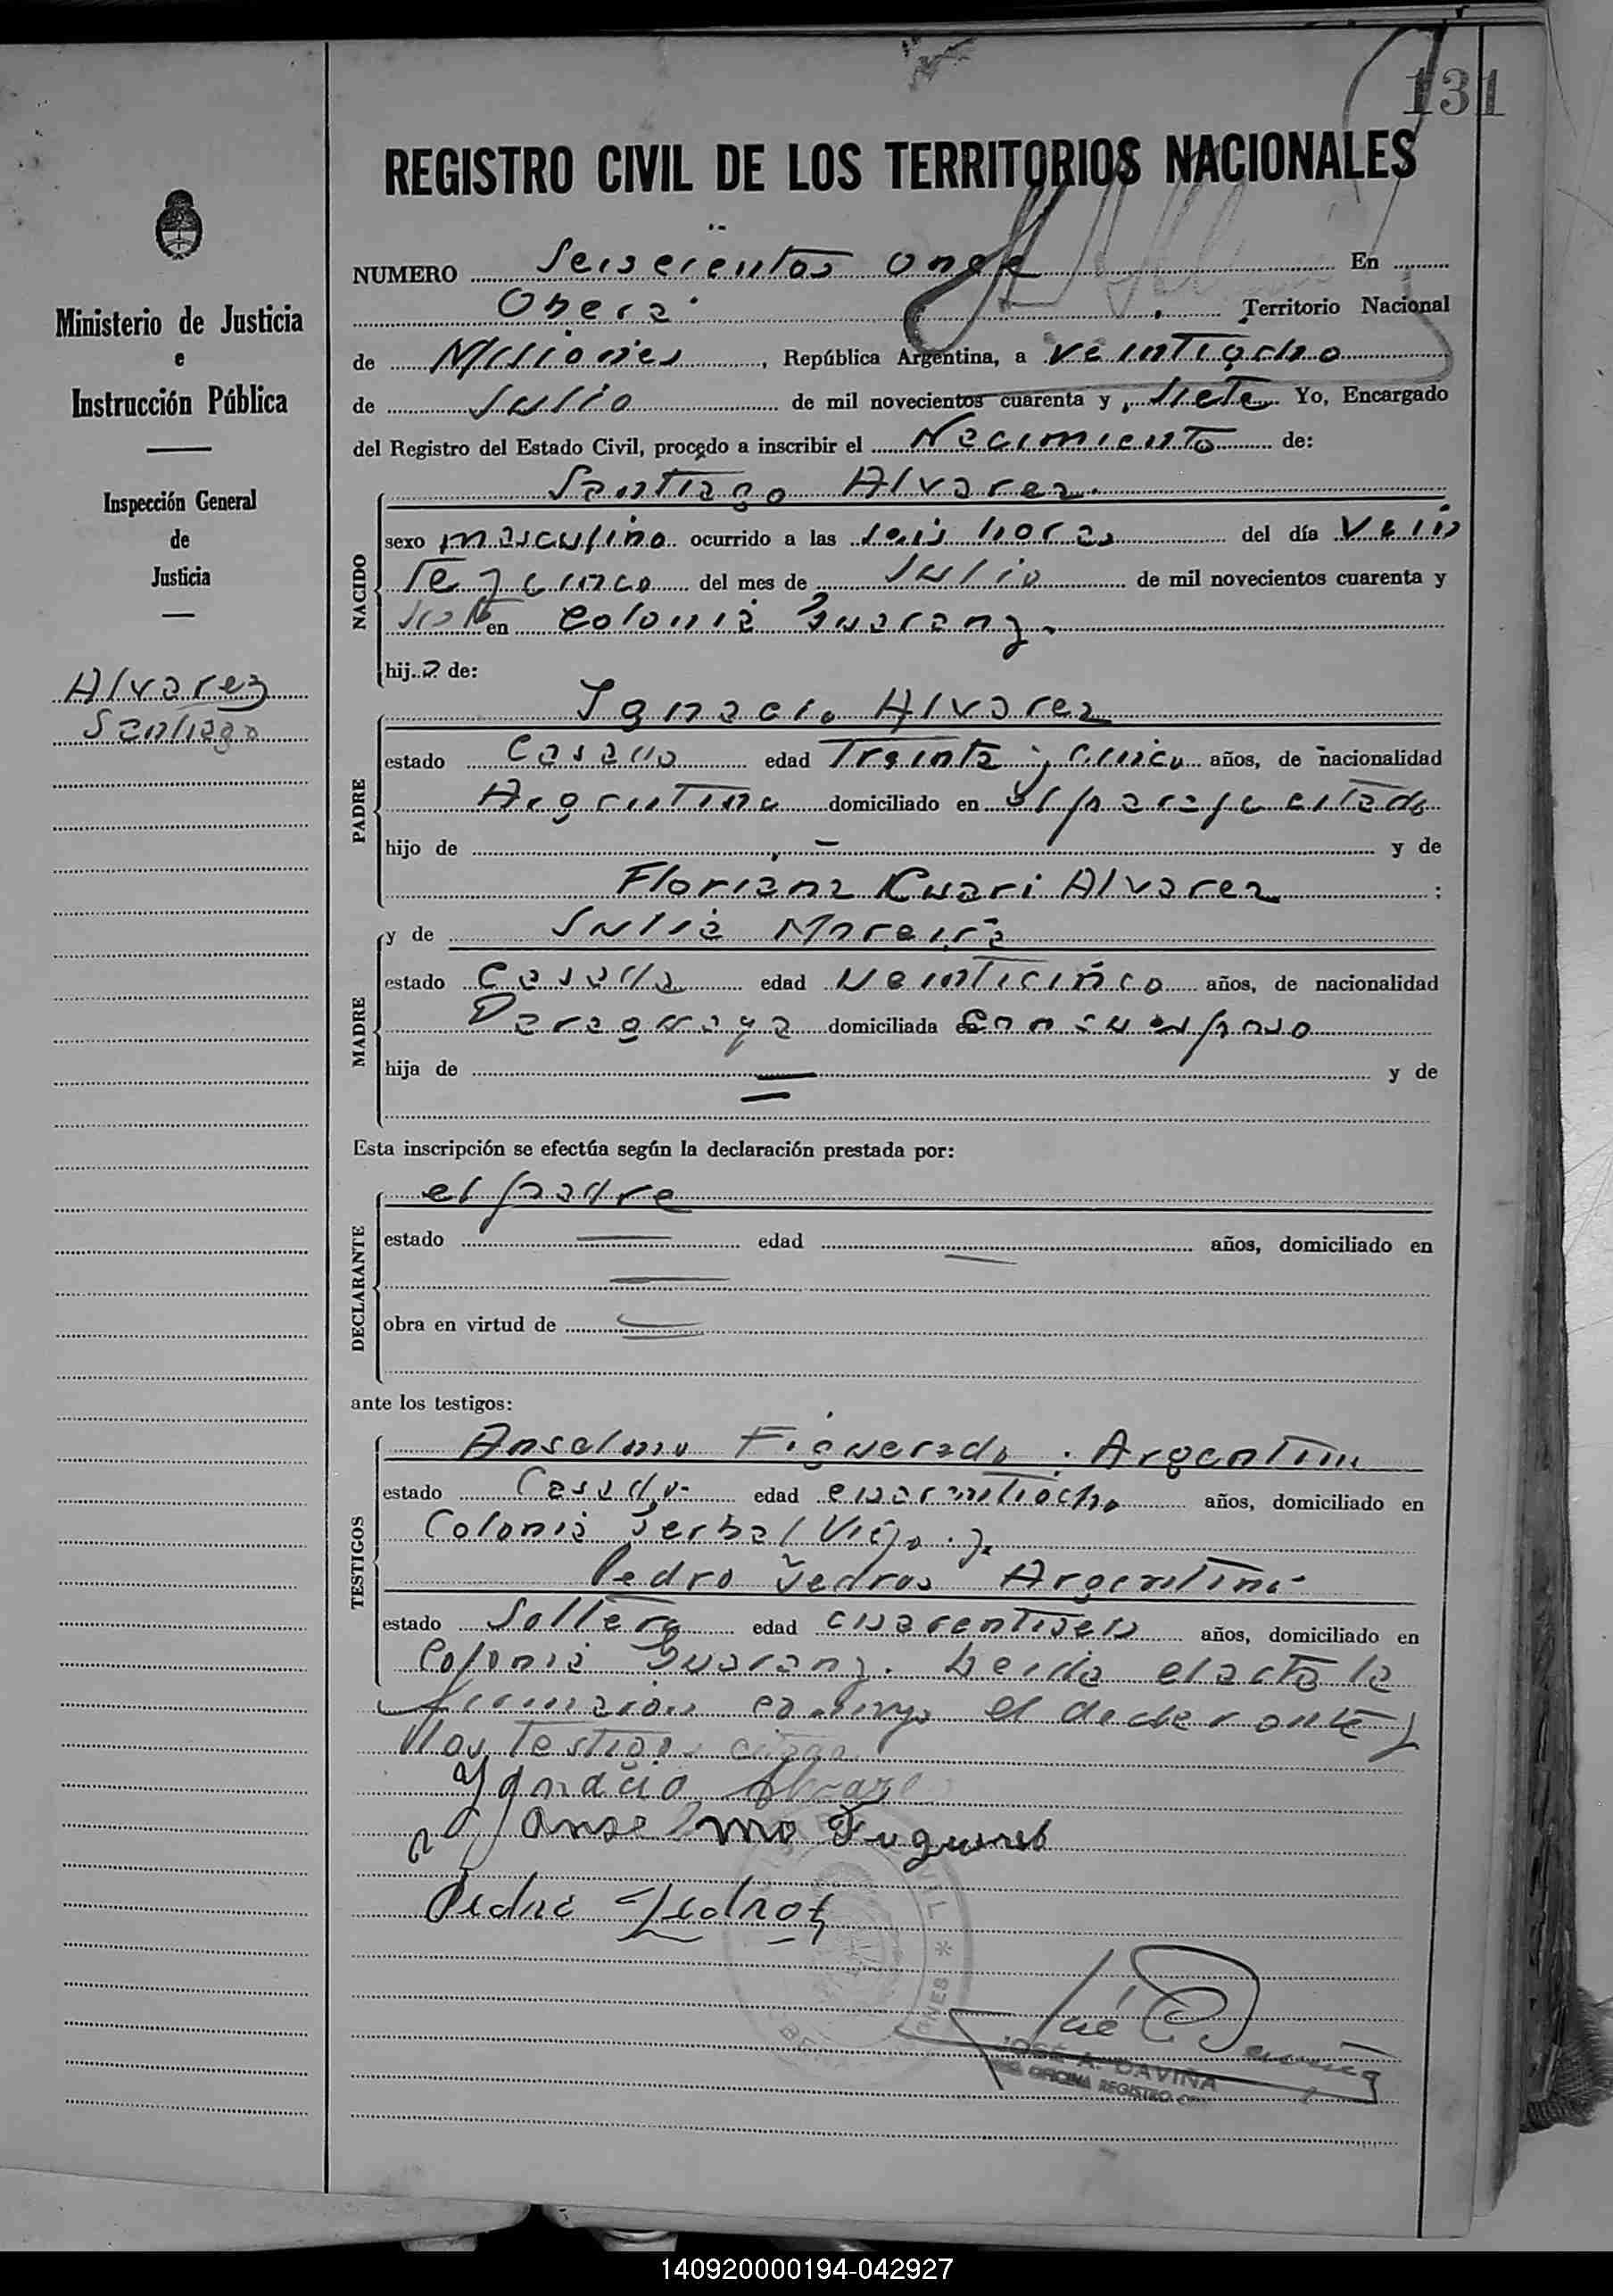 131
REGISTRO CIVIL DE LOS TERRITORIOS NACIONALES
NUMERO Seiscientos once En
Obera Territorio Nacional
de Misiones, República Argentina, a veintiocho
de Julio de mil novecientos cuarenta y siete Yo, Encargado
del Registro del Estado Civil, procedo a inscribir el Nacimiento de:
Ministerio de Justicia
e
Instrucción Pública
Inspección General
de
Justicia
Alvarez
Santiago
NACIDO
Santiago Alvarez.
sexo masculino ocurrido a las seis horas del día vein
te y cinco del mes de Julio de mil novecientos cuarenta y
siete en Colonia Guarany.
hijo de:
PADRE
Ignacio Alvarez
estado Casado edad Treinta y cinco años, de nacionalidad
Argentina domiciliado en el paraje citado
hijo de — y de
Floriana Kuari Alvarez :
MADRE
y de Julia Moreira
estado Casada edad veinticinco años, de nacionalidad
Paraguaya domiciliada con su esposo
hija de — y de
—
Esta inscripción se efectúa según la declaración prestada por:
DECLARANTE
el padre
estado — edad — años, domiciliado en
—
obra en virtud de —
ante los testigos:
TESTIGOS
Anselmo Figueredo. Argentino
estado Casado edad cuarentiocho años, domiciliado en
Colonia Yerbal Viejo. y.
Pedro Yedros Argentino
estado Soltero edad cuarentiseis años, domiciliado en
Colonia Guarany. Leida el acta la
firmaron conmigo el declarante y
los testigos
Ygnacio Alvare
Anselmo
Pedro Yedros
JOSÉ A. DAVIÑA
OFICINA REGISTRO
140920000194-042927